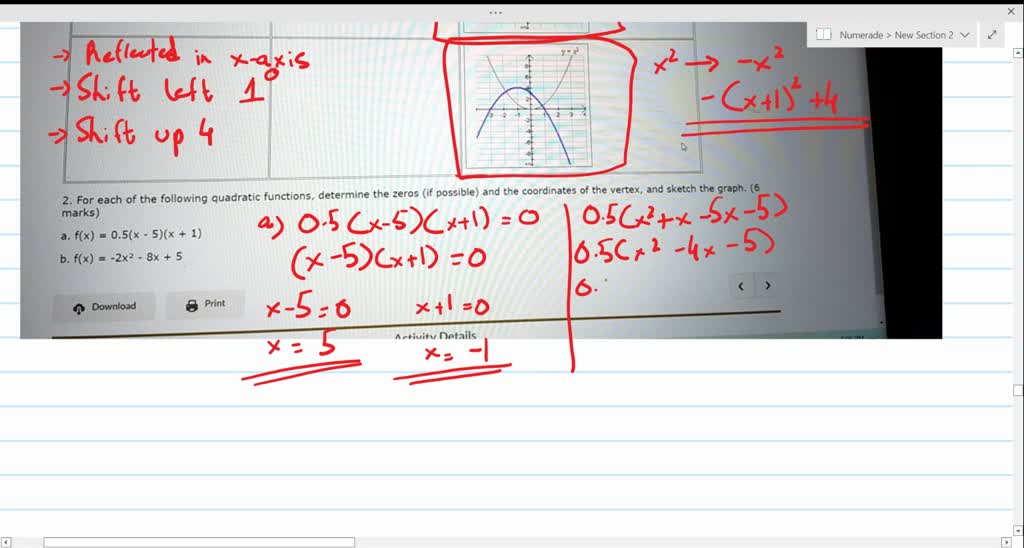 Numerade > New Section 2
→ Reflected in x-axis
→ Shift left 1
→ Shift up 4
y = x²
x² → -x²
-(x+1)² + 4
2. For each of the following quadratic functions, determine the zeros (if possible) and the coordinates of the vertex, and sketch the graph. (6
marks)
a. f(x) = 0.5(x - 5)(x + 1)
b. f(x) = -2x² - 8x + 5
Download
Print
a) 0.5(x-5)(x+1) = 0
(x-5)(x+1) = 0
x-5=0 x+1=0
Activity Details
x = 5 x = -1
0.5(x²+x-5x-5)
0.5(x² -4x -5)
0.